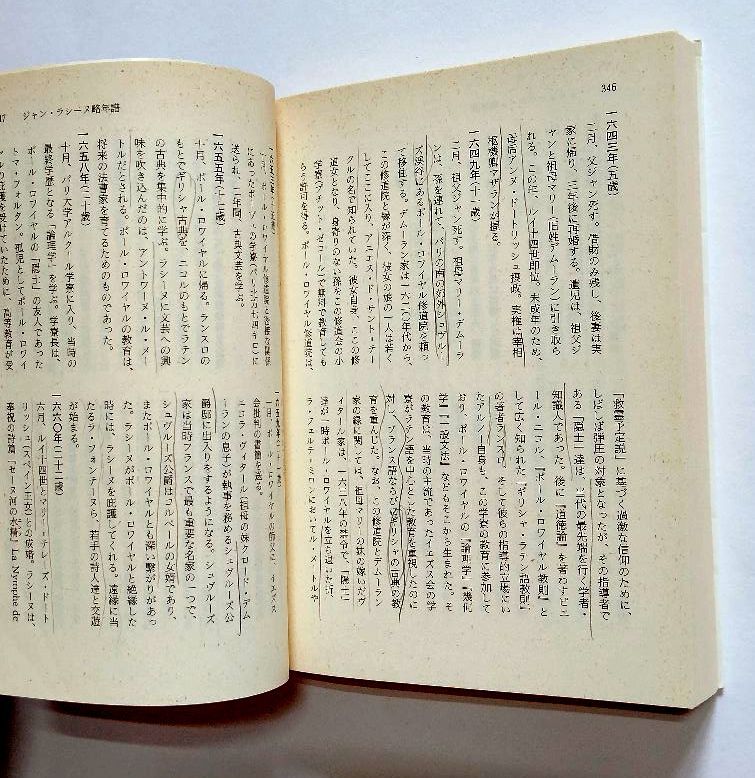 346
一六四三年(五歳)
二月、父ジャン死す。借財のみ残し、後妻は実
家に帰り、三年後に再婚する。遺児は、祖父ジ
ャンと祖マリー(旧姓デムーラン)に引き取ら
れる。この年、ルイ十四世即位。未成年のため、
母后アンヌ・ドートリッシュ摂政。実権は宰相
枢機卿マザランが握る。
一六四九年(十一歳)
二月、祖父ジャン死す。祖母マリー・デムーラ
ンは、孫を連れて、パリの南の郊外シュヴルー
ズ渓谷にあるポール・ロワイヤル修道院を頼っ
て移住する。デムーラン家は一六二〇年代から、
この修道院と縁が深く、彼女の娘の一人は若く
してここに入り、アニエス・ド・サント・テー
クルの名で知られていた。彼女自身、ここの修
道女となり、身寄りのない孫をこの修道会の小
学寮(プチット・ゼコール)で無料で教育しても
らう許可を得る。ポール・ロワイヤル修道院は、
「救霊予定説」に基づく過激な信仰のために、
しばしば弾圧の対象となったが、その指導者で
ある「隠士」達は、一代の最先端を行く学者・
知識人であった。後に『道徳論』を著わすピエ
ール・ニコル、『ポール・ロワイヤル教則』と
して広く知られた『ギリシャ・ラテン語教則』
の著者ランスロ、そして彼らの指導的立場にい
たアルノー自身も、この学寮の教育に参加して
おり、ポール・ロワイヤルの『論理学』『幾何
学』『一般文法』などもそこから生まれた。そ
の教育は、当時の主流であったイエズス会の学
寮がラテン語を中心とした教育を重視したのに
対し、フランス語ならびにギリシャの古典の教
育を重んじた。なお、この修道院とデムーラン
家の縁に関しては、祖母マリーの妹の嫁いだヴ
ィタール家は、一六三八年の禁令で、「隠士」
達が一時ポール・ロワイヤルを立ち退いた折、
ラ・フェルテ・ミロンにおいてル・メートルや
ジャン・ラシーヌ略年譜
にあったボーヴェの学寮(パリの北七四キロ)に
送られ、二年間、古典文芸を学ぶ。
一六五五年(十七歳)
十月、ポール・ロワイヤルに帰る。ランスロの
もとでギリシャ古典を、ニコルのもとでラテン
の古典を集中的に学ぶ。ラシーヌに文芸への興
味を吹き込んだのは、アントワーヌ・ル・メー
トルだとされる。ポール・ロワイヤルの教育は、
将来の法曹家を育てるためのものであった。
一六五八年(二十歳)
十月、パリ大学アルクール学寮に入り、当時の
最終学歴となる「論理学」を学ぶ。学寮長は、
ポール・ロワイヤルの「隠士」の友人であった
トマ・フォルタン。孤児としてポール・ロワイ
ヤルの庇護を受けていたために、高等教育が受
会批判の書簡を送る。
ニコラ・ヴィタール(祖母の妹クロード・デム
ーランの息子)が執事を務めるシュヴルーズ公
爵邸に出入りをするようになる。シュヴルーズ公
家は当時フランスで最も重要な名家の一つで、
シュヴルーズ公爵はコルベールの女婿であり、
またポール・ロワイヤルとも深い繋がりがあっ
た。ラシーヌがポール・ロワイヤルと絶縁した
時には、ラシーヌを庇護してくれる。遠縁に当
たるラ・フォンテーヌら、若手の詩人達と交遊
が始まる。
一六六〇年(二十二歳)
六月、ルイ十四世とマリー・テレーズ・ドート
リッシュ(スペイン王女)との成婚。ラシーヌは、
奉祝の詩篇「セーヌ河の水精」La Nymphe de